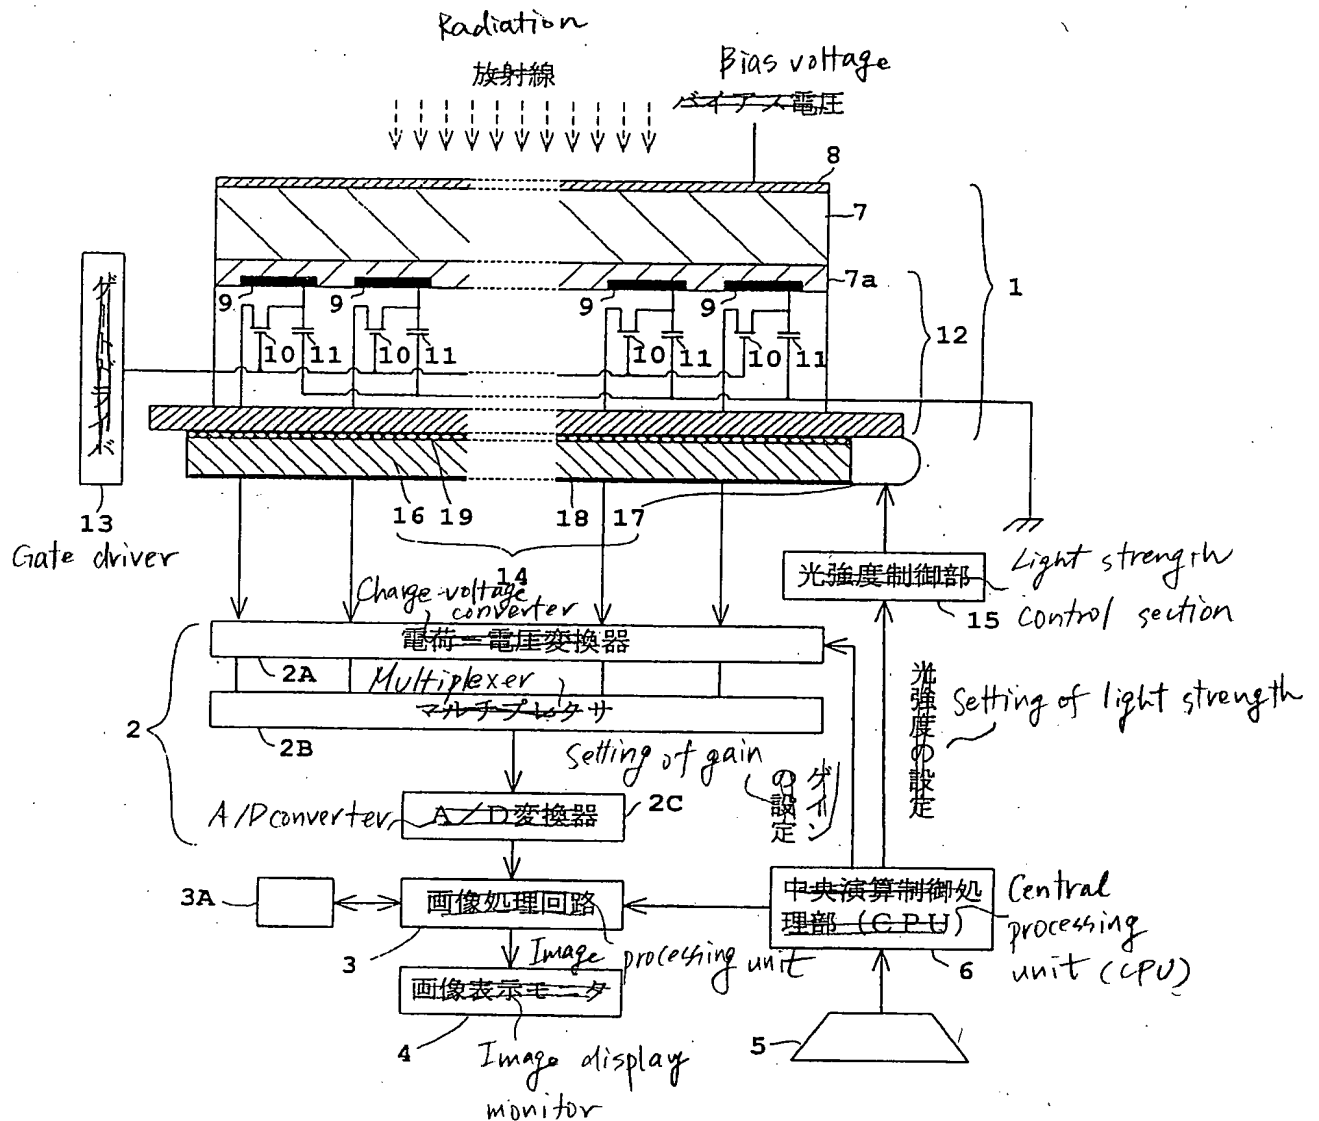 Radiation
放射線
Bias voltage
バイアス電圧
8
7
7a
1
12
9
9
9
9
10
11
10
11
10
11
10
11
ゲートドライバ
13
Gate driver
16
19
18
17
14
光強度制御部
15
Light strength
control section
Charge-voltage
converter
電荷－電圧変換器
2A
Multiplexer
マルチプレクサ
2B
2
光強度の設定
Setting of light strength
Setting of gain
ゲイン
の設定
A/D converter
A／D変換器
2C
3A
画像処理回路
3
Image processing unit
中央演算制御処
理部（CPU）
6
Central
processing
unit (CPU)
画像表示モニタ
4
Image display
monitor
5